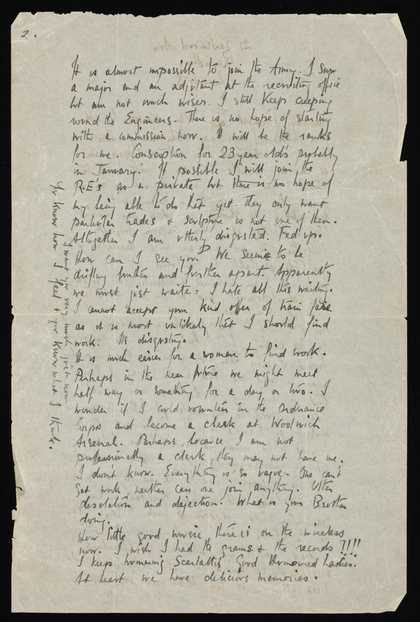 2.
It is almost impossible to join the Army. I saw
a major and an adjutant at the recruiting office
but am not much wiser. I still keep creeping
round the Engineers. There is no hope of starting
with a commission now. It will be the ranks
for me. Conscription for 23 year olds probably
in January. If possible I will join the
R.E's as a private but there is no hope of
my being able to do that yet they only want
particular trades & sculpture is not one of them.
Altogether I am utterly disgusted. Fed up.
How can I see you? We seem to be
drifting further and further apart. Apparently
we must just wait. I hate all this waiting.
I cannot accept your kind offer of train fare
as it is most unlikely that I should find
work. Its disgusting.
It is much easier for a woman to find work.
Perhaps in the near future we might meet
half way or something for a day or two. I
wonder if I could volunteer in the Ordnance
Corps and become a clerk at Woolwich
Arsenal. Perhaps, because I am not
professionally a clerk they may not have me.
I don't know. Everything is so vague. One can't
get work neither can one join anything. Utter
desolation and dejection. What is your Brother
doing.
How little good music there is on the wireless
now. I wish I had the gram & the records ?!!!
I keep humming Scarlatti's Good Humoured Ladies.
At heart we have delicious memories.
I want you very much just now
You know how I feel & you know what I think.